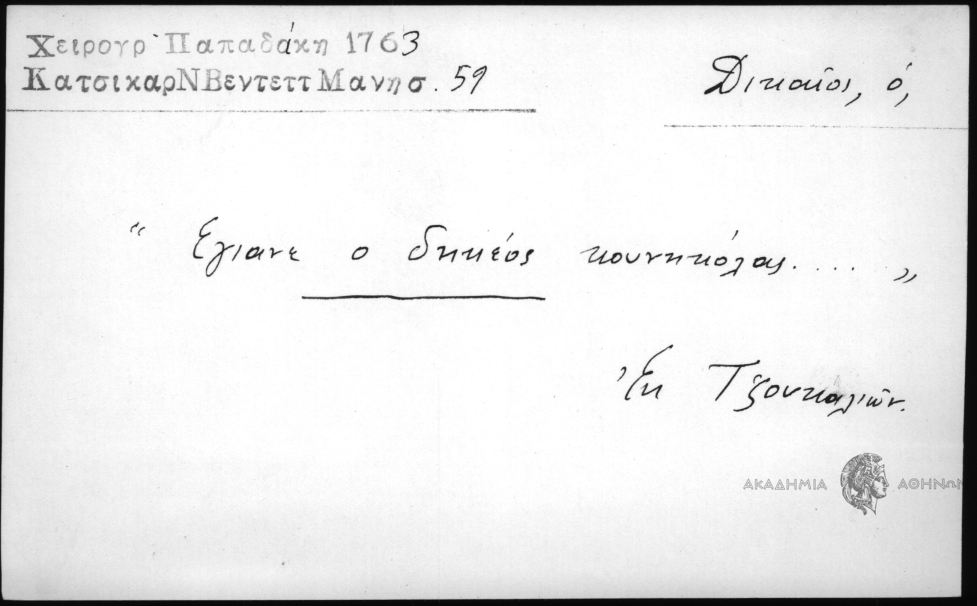 Χειρογρ Παπαδάκη 1763
ΚατσικαρΝΒεντεττ Μανης σ. 59
Δικαῖος, ὁ,
“ έγιανε ο δηκέος κουνηκόλας.... „
Ἐκ Τζουκαλιῶν.
ΑΚΑΔΗΜΙΑ ΑΘΗΝΩΝ